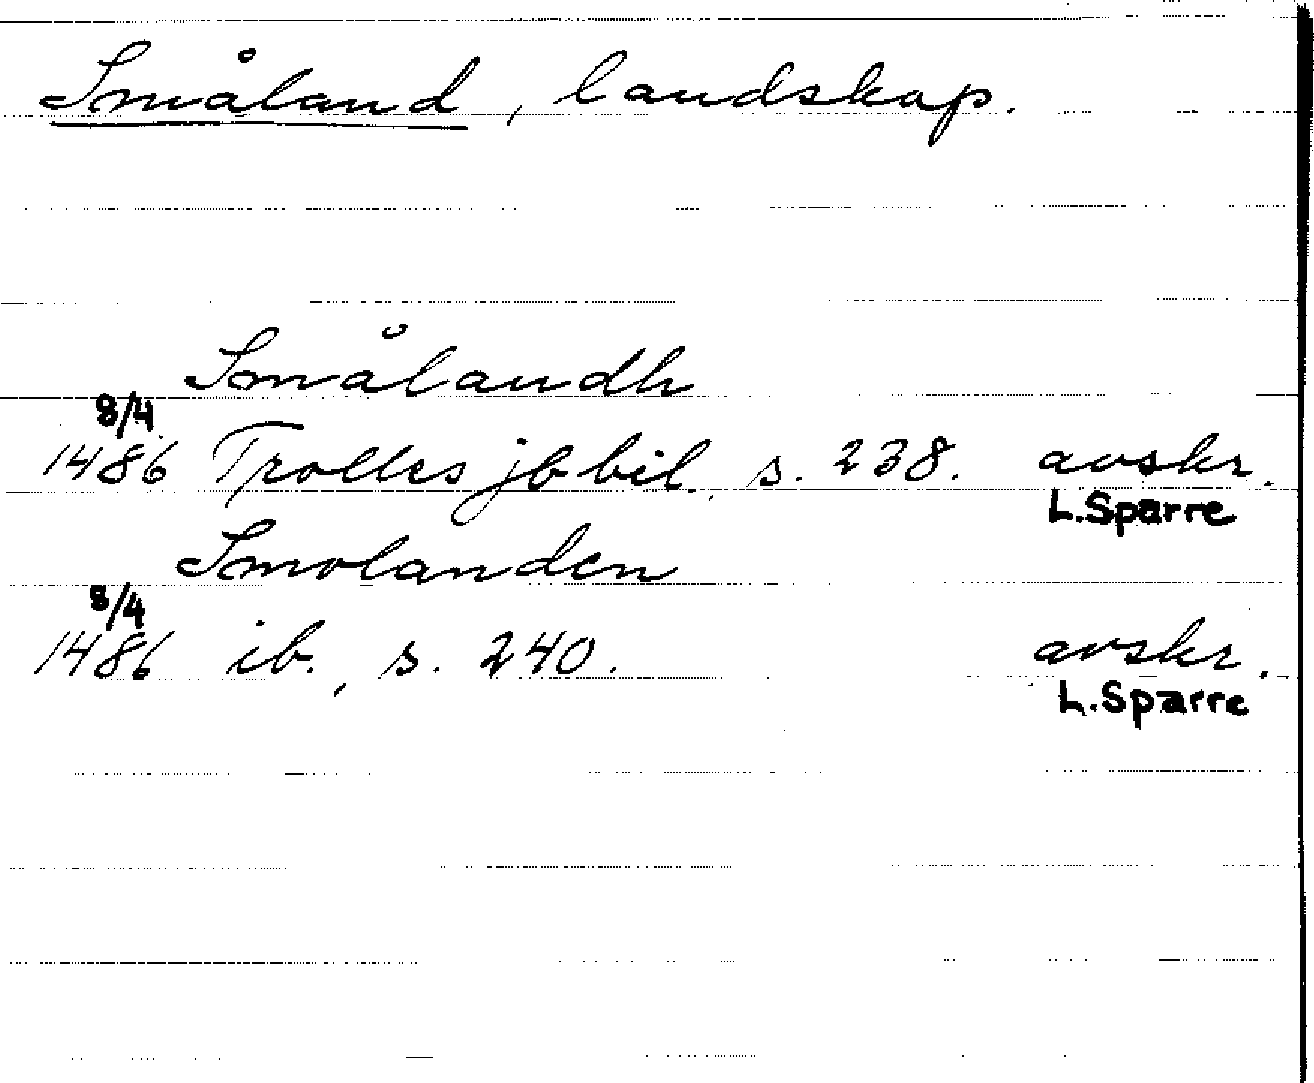 Småland, landskap.
Smålandh
8/4
1486 Trolles jb bil. s. 238. avskr.
L.Sparre
Smolanden
8/4
1486 ib., s. 240. avskr.
L.Sparre